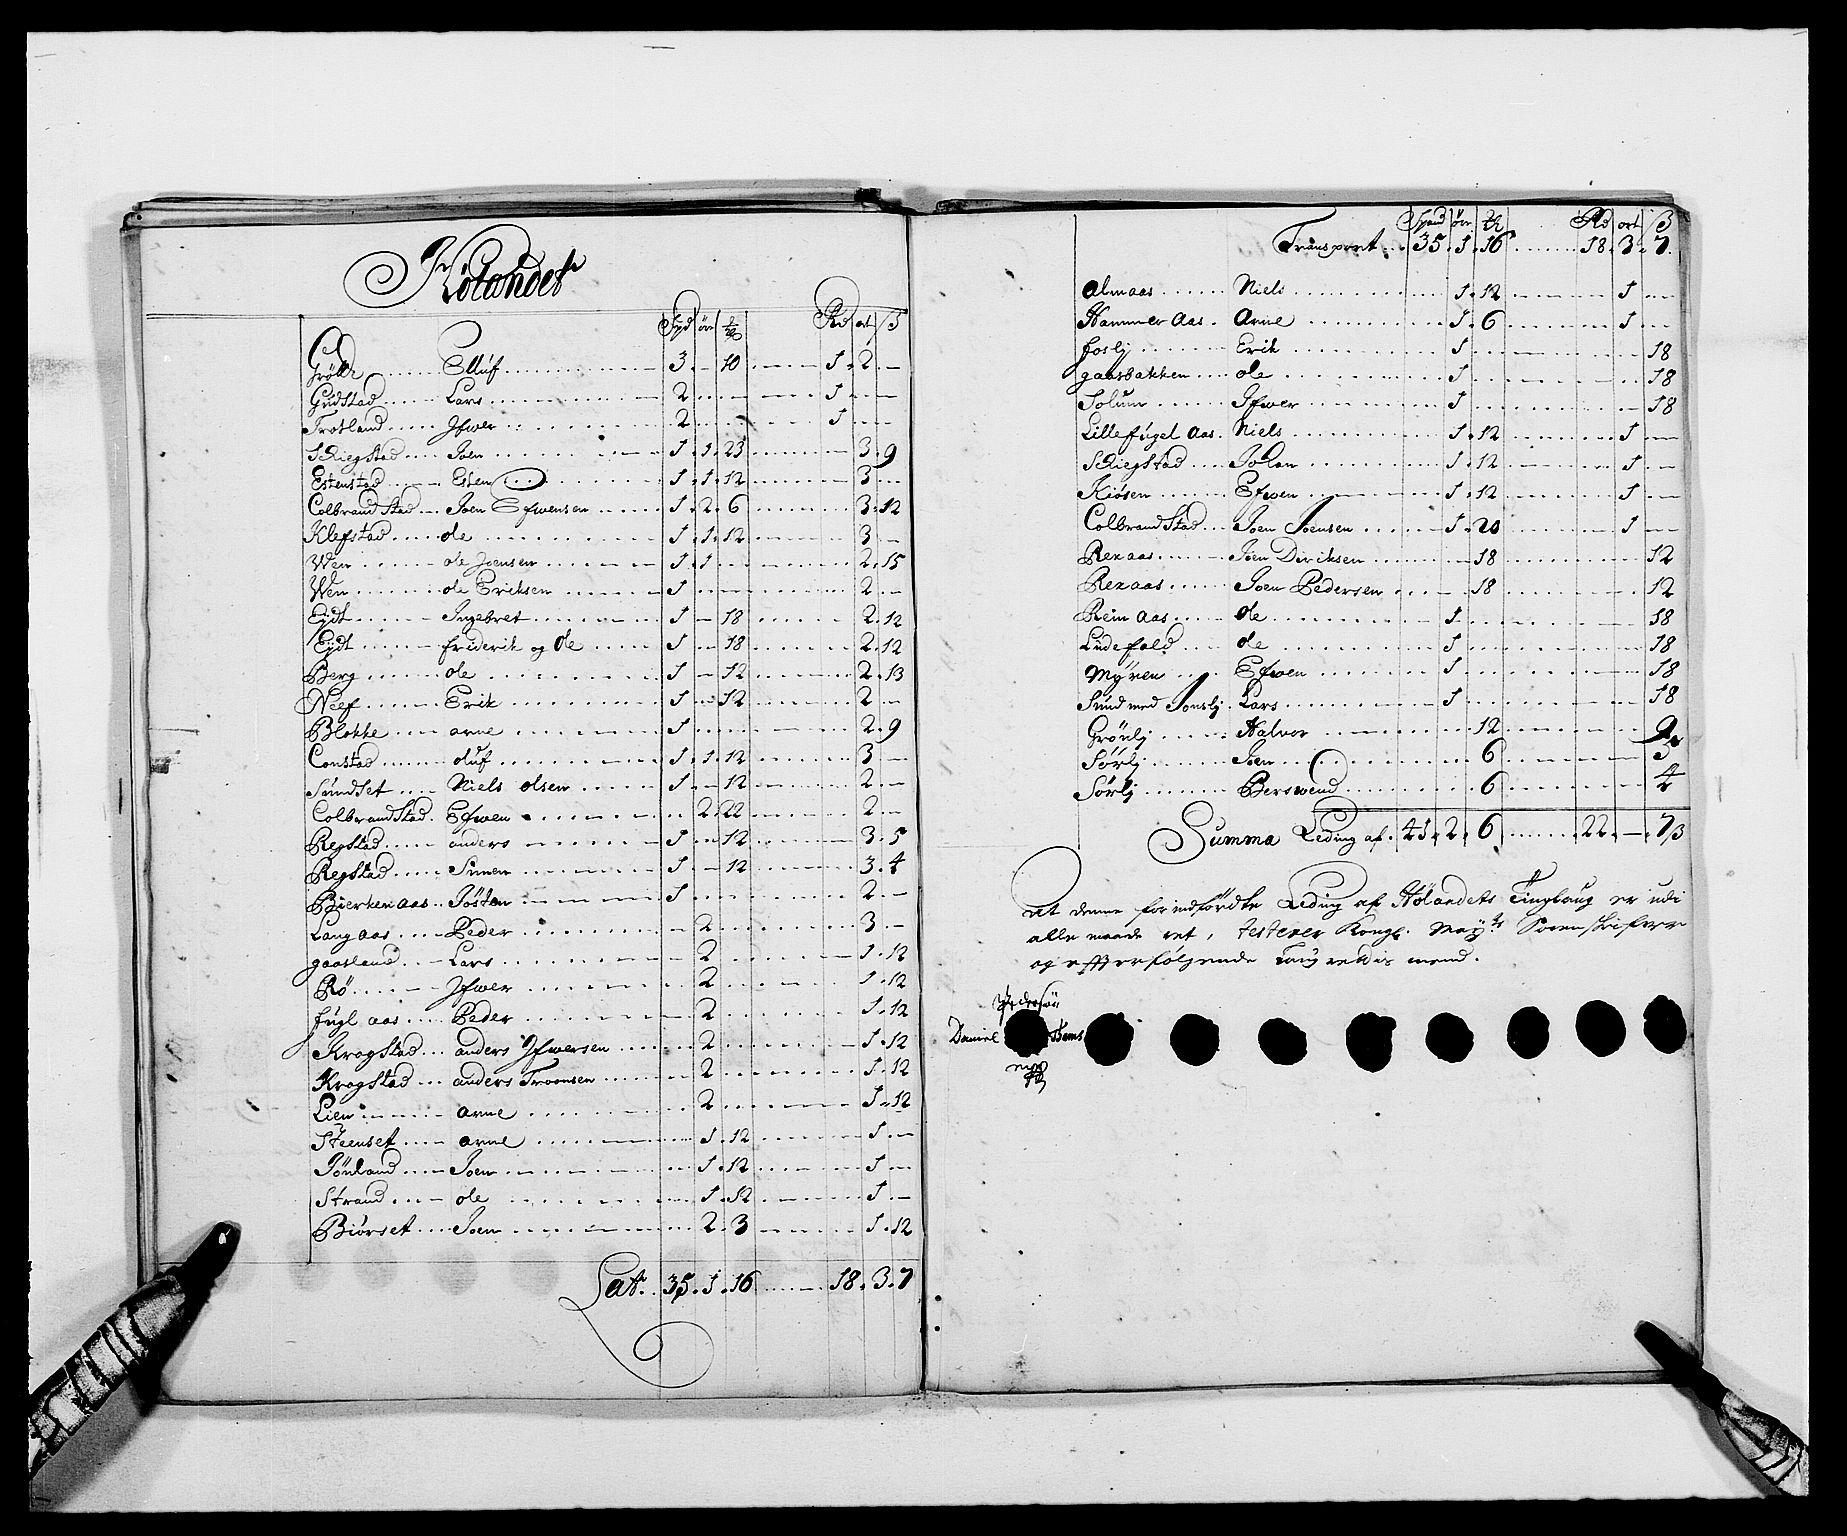 Hølandet
Spd ør mk Rd ort ß
Grøtte ...... Elluf ...... 3 - 10 ...... 1 . 2 . -
Gudstad ...... Lars ...... 2 ...... 1 . - -
Trotland ...... Ifwer ...... 2 ...... 1
Schiegstad .... Joen ...... 1 . 1 . 23 ...... 3 . 9
Estenstad ...... Esten ...... 1 . 1 . 12 ...... 3 -
Colbrandstad .. Joen Efwensen ...... 1 . 2 . 6 ...... 3 . 12
Klefstad ..... ole ...... 1 . 1 . 12 ...... 3 -
Wen ...... ole Joensen ...... 1 . 1 ...... 2 . 15
Wen ...... ole Eriksen ...... 1 ...... 2 . -
Eydt ...... Ingebret ...... 1 - 18 ...... 2 . 12
Eydt ...... friderik og Ole ..... 1 - 18 ...... 2 . 12
Berg ...... ole ...... 1 - 12 ...... 2 . 13
Neef ...... Erik ...... 1 - 12 ...... 2 -
Blokke .... arne ...... 1 ...... 2 . 9
Constad ...... oluf ...... 1 . 1 . 12 ...... 3 -
Sundset .... Niels olsen ...... 1 - 12 ...... 2 . -
Colbrandstad . Efwen ...... 2 . 22 ...... 2 . -
Regstad ..... anders ...... 1 - 12 ...... 3 . 5
Regstad ..... Simen ...... 1 - 12 ...... 3 . 4
Bierken aas .. Jøsten ...... 1 ...... 2 . -
Lang aas .... Peder ...... 2 ...... 3 . -
gaasland ... Lars ...... 2 ...... 1 . 12
Rø ...... Ifwer ...... 2 ...... 1 . 12
fugl aas .... Peder ...... 2 ...... 1 . 12
Krogstad ... anders Ifwersen ...... 2 ...... 1 . 12
Krogstad ... anders Troensen ...... 2 ...... 1 . 12
Lien ...... arne ...... 2 ...... 1 . 12
Steenset .... arne ...... 1 . 12 ...... 1 . -
Jönland .... Joen ...... 1 . 12 ...... 1 . -
Strand .... ole ...... 1 . 12 ...... 1 . -
Biørset .... Joen ...... 2 . 3 ...... 1 . 12
Lat. .. 35 . 1 . 16 ...... 18 . 3 . 7
Spand ør mk Rd ort ß
Transport ... 35 . 1 . 16 ...... 18 . 3 . 7
Almaas ...... Niels ...... 1 . 12 ...... 1 . -
Hammer aas . Arne ...... 1 . 6 ...... 1 . -
foslj ...... Erik ...... 1 ...... 18
gaasbakken .... ole ...... 1 ...... 18
Solum ...... Ifwer ...... 1 ...... 18
Lillefugel aas . Niels ...... 1 . 12 ...... 1 . -
Schiegstad .... ...... 1 . 12 ...... 1 . -
Kiøsen ...... Efwen ...... 1 . 12 ...... 1 . -
Colbrandstad .. Joen Joensen ...... 1 . 20 ...... 1 . -
Renaas ..... Joen Diriksen ...... 18 ...... 12
Renaas ...... Joen Pedersen ...... 18 ...... 12
Reim aas .... ole ...... 1 ...... 18
Ludefald ..... ole ...... 1 ...... 18
Myren .... Efwen ...... 1 ...... 18
Sund med Jonslj . Lars ...... 1 ...... 18
Grønlj ...... Halvor ...... 12 ...... 9
Sørlj ...... Joen ...... 6 ...... 3
Sørlj ...... Berswend ...... 6 ...... 4
Summa Leding af . 41 . 2 . 6 ...... 22 . - . 7 ß
At denne forindførdte Leding af Hølandets Tinglaug er udi
alle maade ret, testerer Kongl. Mayts Sorenskrifver
og effterfølgende Laugrettis mend.
Pedersøn
Daniel Rams
mpp